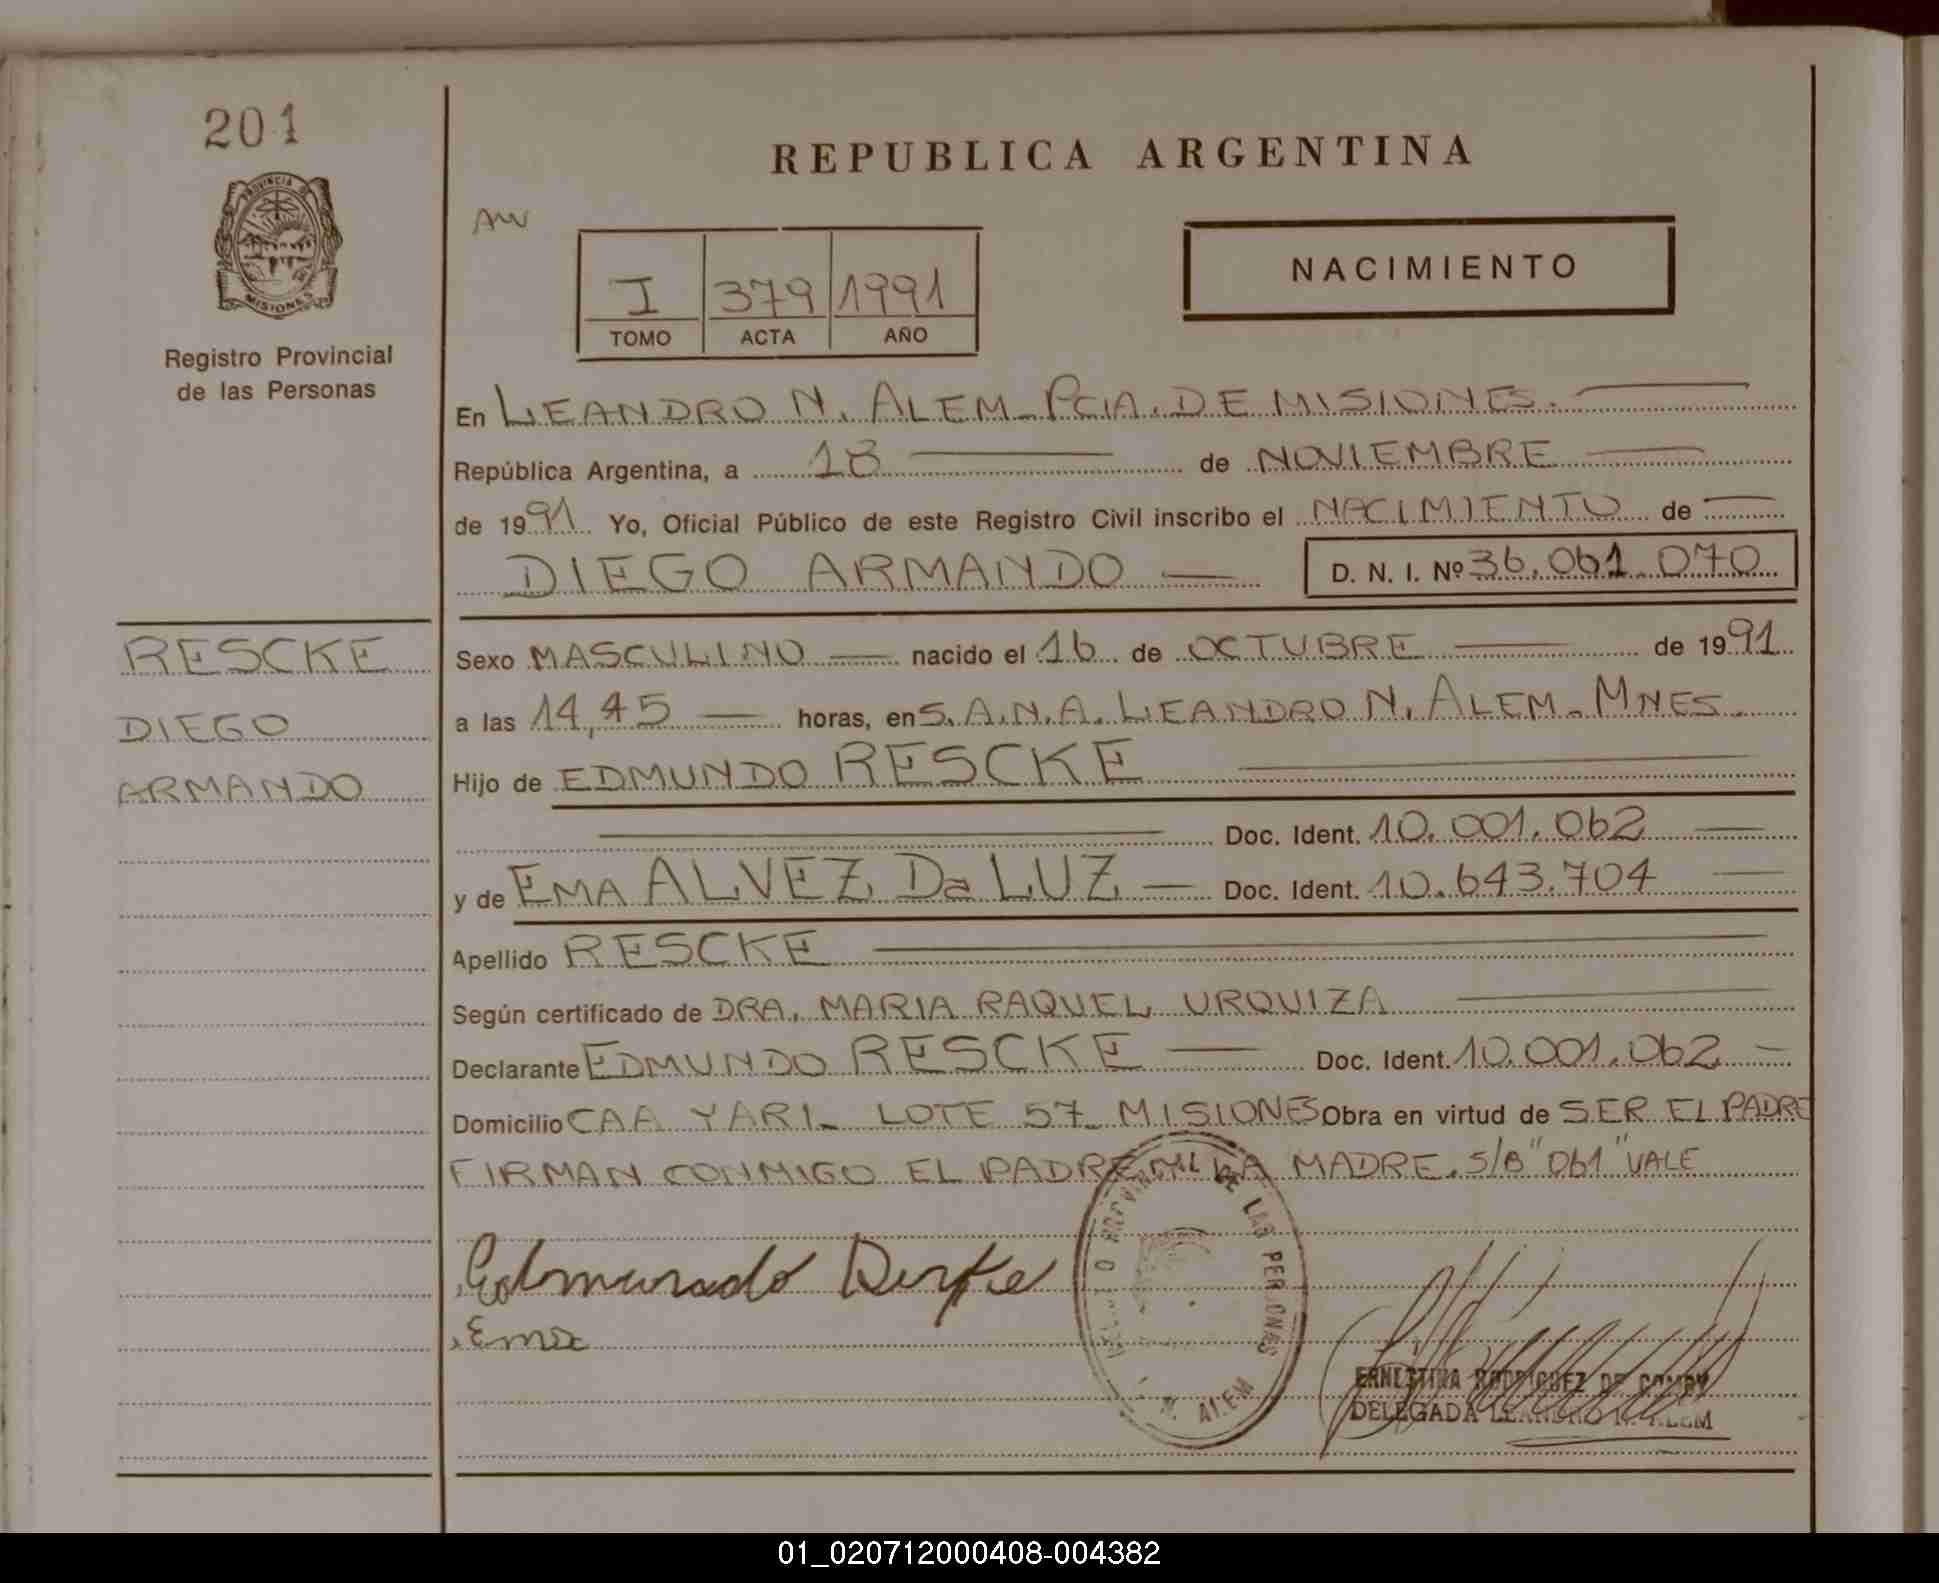 201
PROVINCIA DE
MISIONES
Registro Provincial
de las Personas
REPUBLICA ARGENTINA
AW
I 379 1991
TOMO ACTA AÑO
NACIMIENTO
En LEANDRO N. ALEM_ PCIA. DE MISIONES.
República Argentina, a 18 de NOVIEMBRE
de 1991 Yo, Oficial Público de este Registro Civil inscribo el NACIMIENTO de
DIEGO ARMANDO D. N. I. Nº 36.061.070
RESCKE
DIEGO
ARMANDO
Sexo MASCULINO nacido el 16 de OCTUBRE de 1991
a las 14,45 horas, en S.A.N.A. LEANDRO N. ALEM_ MNES.
Hijo de EDMUNDO RESCKE
Doc. Ident. 10.001.062
y de EMA ALVEZ Da LUZ Doc. Ident. 10.643.704
Apellido RESCKE
Según certificado de DRA. MARIA RAQUEL URQUIZA
Declarante EDMUNDO RESCKE Doc. Ident. 10.001.062
Domicilio CAA YARI_ LOTE 57_ MISIONES Obra en virtud de SER EL PADRE
FIRMAN CONMIGO EL PADRE LA MADRE. S/B "061" VALE
Edmundo
Ema
DE LAS PERSONAS
N. ALEM
ERNESTINA RODRIGUEZ DE
DELEGADA LEANDRO N. ALEM
01_020712000408-004382